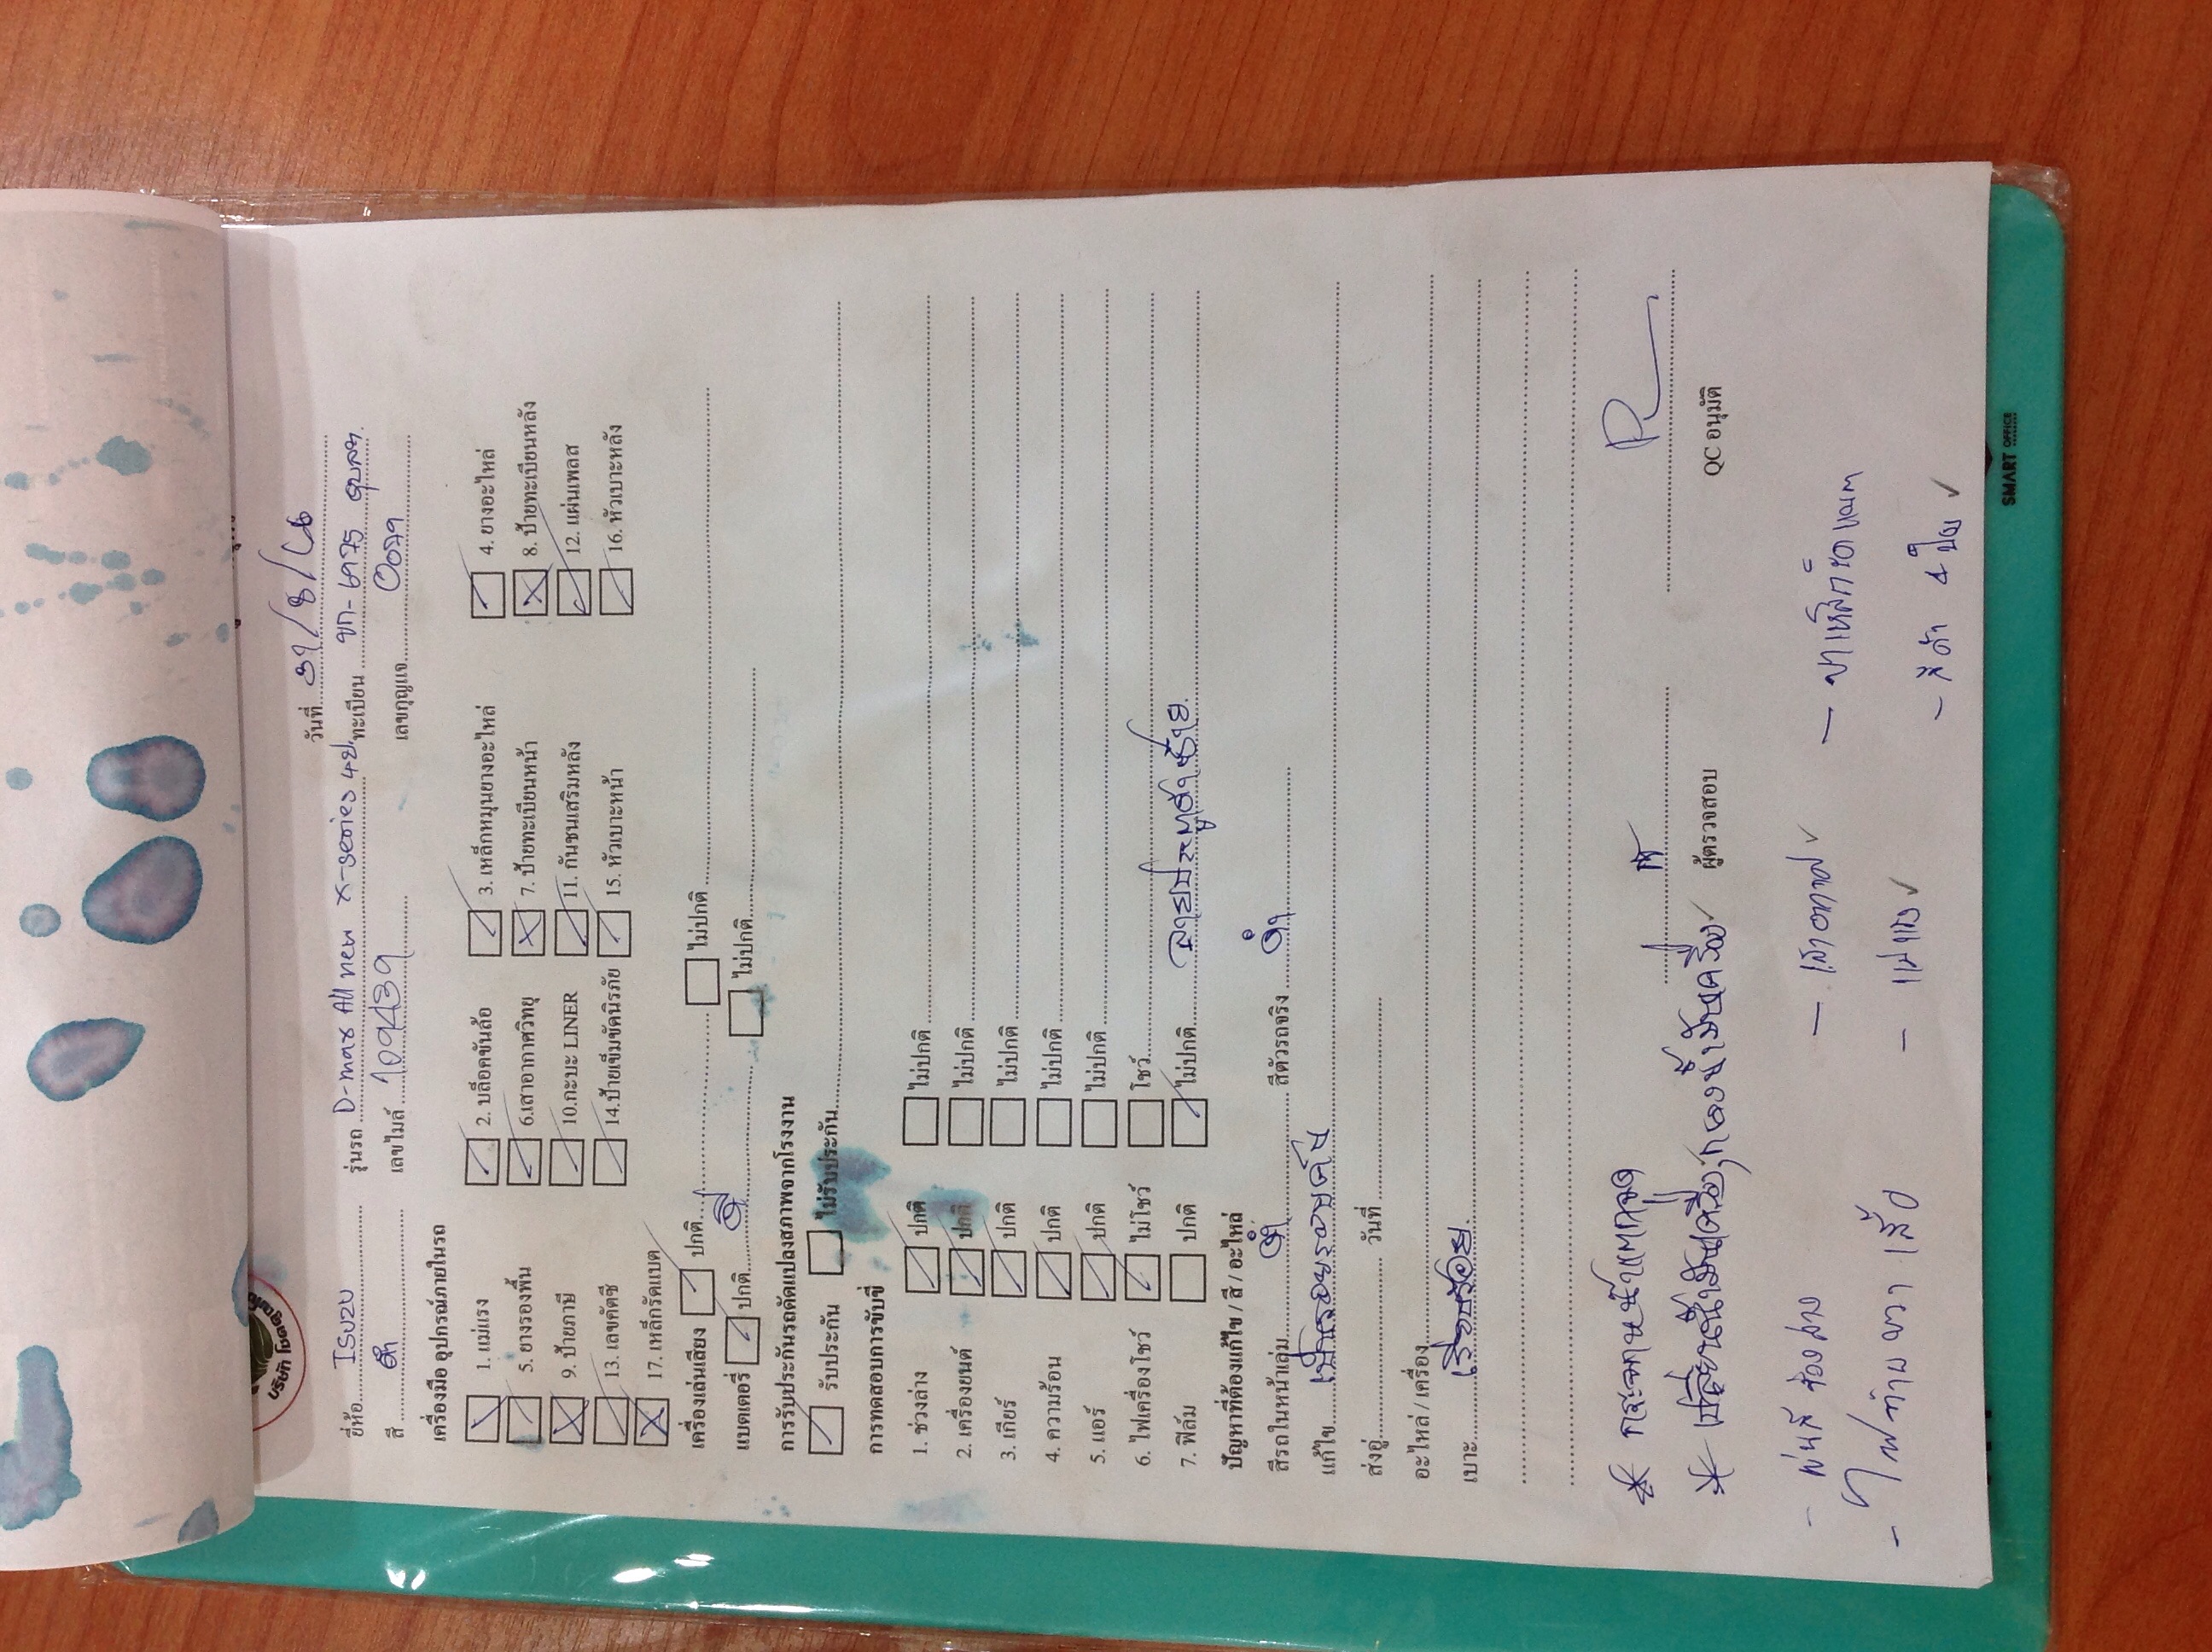 บริษัท โชคคูณ
วันที่ 31/8/66
ยี่ห้อ ISUZU รุ่นรถ D-max All new x-series 4ป ทะเบียน ขก-
สี ดำ เลขไมล์ 109439 เลขกุญแจ
เครื่องมือ อุปกรณ์ภายในรถ
1. แม่แรง 2. บล็อคขันล้อ 3. เหล็กหมุนยางอะไหล่ 4. ยางอะไหล่
5. ยางรองพื้น 6.เสาอากาศวิทยุ 7. ป้ายทะเบียนหน้า 8. ป้ายทะเบียนหลัง
9. ป้ายภาษี 10.กะบะ LINER 11. กันชนเสริมหลัง 12. แผ่นเพลส
13. เลขคัตซี 14.ป้ายเข็มขัดนิรภัย 15. หัวเบาะหน้า 16. หัวเบาะหลัง
17. เหล็กรัดแบต
เครื่องเล่นเสียง ปกติ ไม่ปกติ
แบตเตอรี่ ปกติ ดี ไม่ปกติ
การรับประกันรถดัดแปลงสภาพจากโรงงาน
รับประกัน ไม่รับประกัน
การทดสอบการขับขี่
1. ช่วงล่าง ปกติ ไม่ปกติ
2. เครื่องยนต์ ปกติ ไม่ปกติ
3. เกียร์ ปกติ ไม่ปกติ
4. ความร้อน ปกติ ไม่ปกติ
5. แอร์ ปกติ ไม่ปกติ
6. ไฟเครื่องโชว์ ไม่โชว์ โชว์
7. ฟิล์ม ปกติ ไม่ปกติ ลายประตูซ้าย
ปัญหาที่ต้องแก้ไข / สี / อะไหล่
สีรถในหน้าเล่ม ดำ สีตัวรถจริง ดำ
แก้ไข เป็นรอยรอบคัน
ส่งอู่ วันที่
อะไหล่ / เครื่อง
เบาะ เรียบร้อย
* กระจกหน้าแตกจุด
* เปลี่ยนน้ำมันเครื่อง,กรองน้ำมันเครื่อง ✓
ผู้ตรวจสอบ QC อนุมัติ
- พ่นสี
- เสาอากาศ ✓
- ขาเหล็กรัดแบต
- ไฟท้ายขวา
- แม่แรง ✓
- สีดำ 4 ใบ ✓
SMART OFFICE